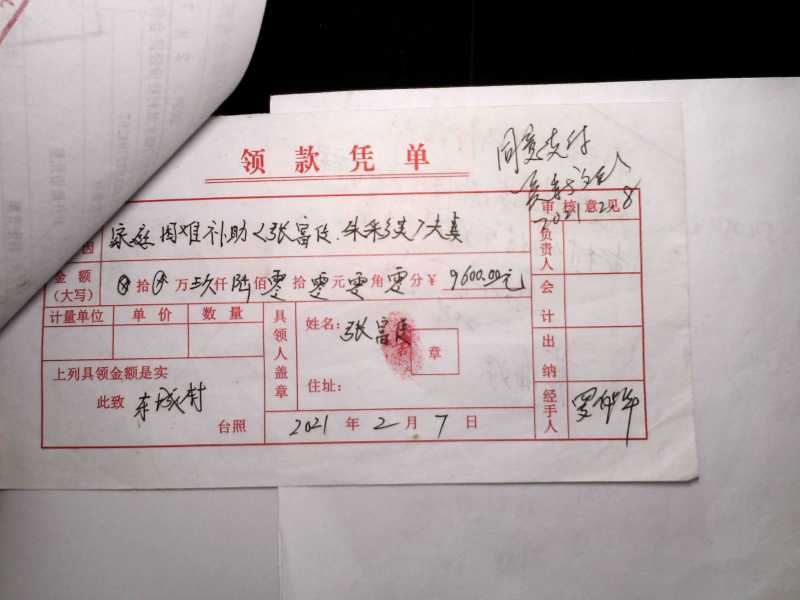 领款凭单
同意支付
2021 2 8
审核意见
因 家庭困难补助
负责人
金额（大写） 拾 万 玖仟陆佰零拾零元零角零分￥ 9600.00元
计量单位 单价 数量
具领人盖章
姓名： 张富
章
住址：
会计
出纳
上列具领金额是实
此致 东城村
台照
2021 年 2 月 7 日
经手人 罗